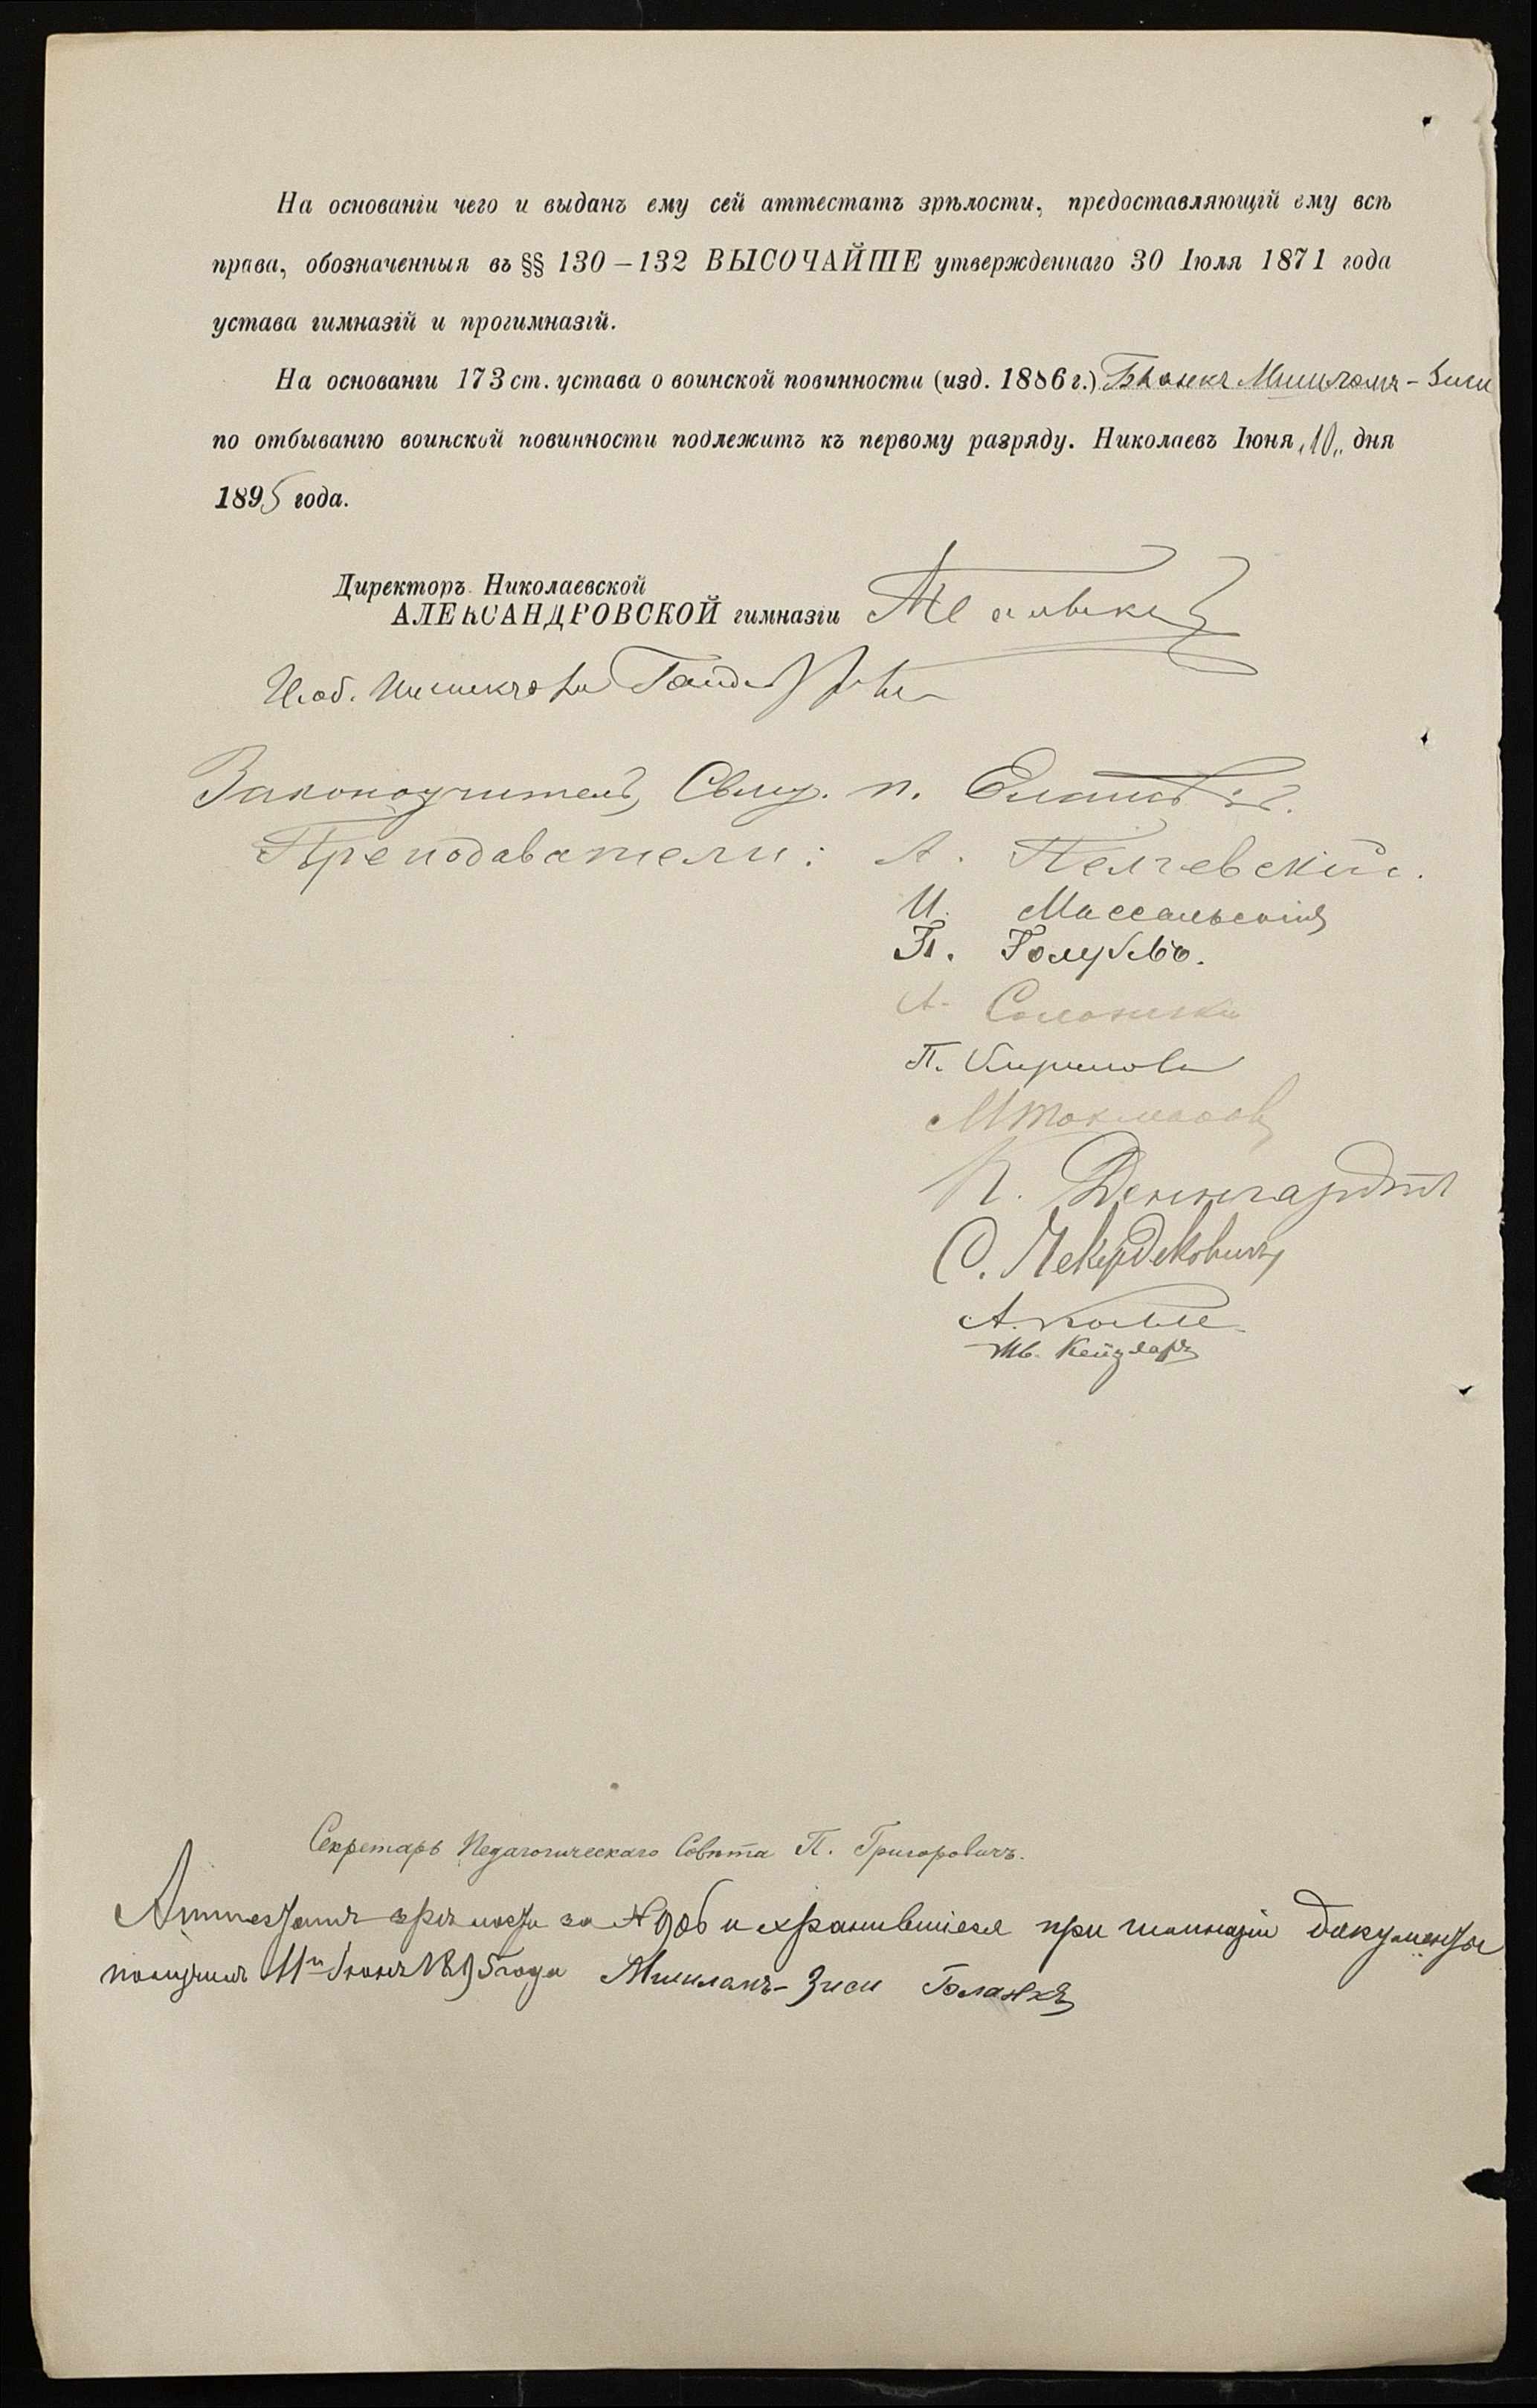 На основаніи чего и выданъ ему сей аттестатъ зрѣлости, предоставляющій ему всѣ
права, обозначенныя въ §§ 130–132 ВЫСОЧАЙШЕ утвержденнаго 30 Іюля 1871 года
устава гимназій и прогимназій.
На основаніи 173 ст. устава о воинской повинности (изд. 1886 г.) Бланкъ - Зиси
по отбыванію воинской повинности подлежитъ къ первому разряду. Николаевъ Іюня „10„ дня
1895 года.
Директоръ Николаевской
АЛЕКСАНДРОВСКОЙ гимназіи
И. об. Инспектора
Законоучитель, Свящ. п.
Преподаватели: А. Пелчевскій.
И. Массальскій
П. Голубовъ.
А.
П. Кирилловъ
М
К. Деннгардтъ
С.
А.
Ив. Кейзларъ
Секретарь Педагогическаго Совѣта П. Григоровичъ.
Аттестатъ зрѣлости за № 906 и хранившіеся при гимназіи документы
получилъ 11го Іюня 1895 года - Зиси Бланкъ